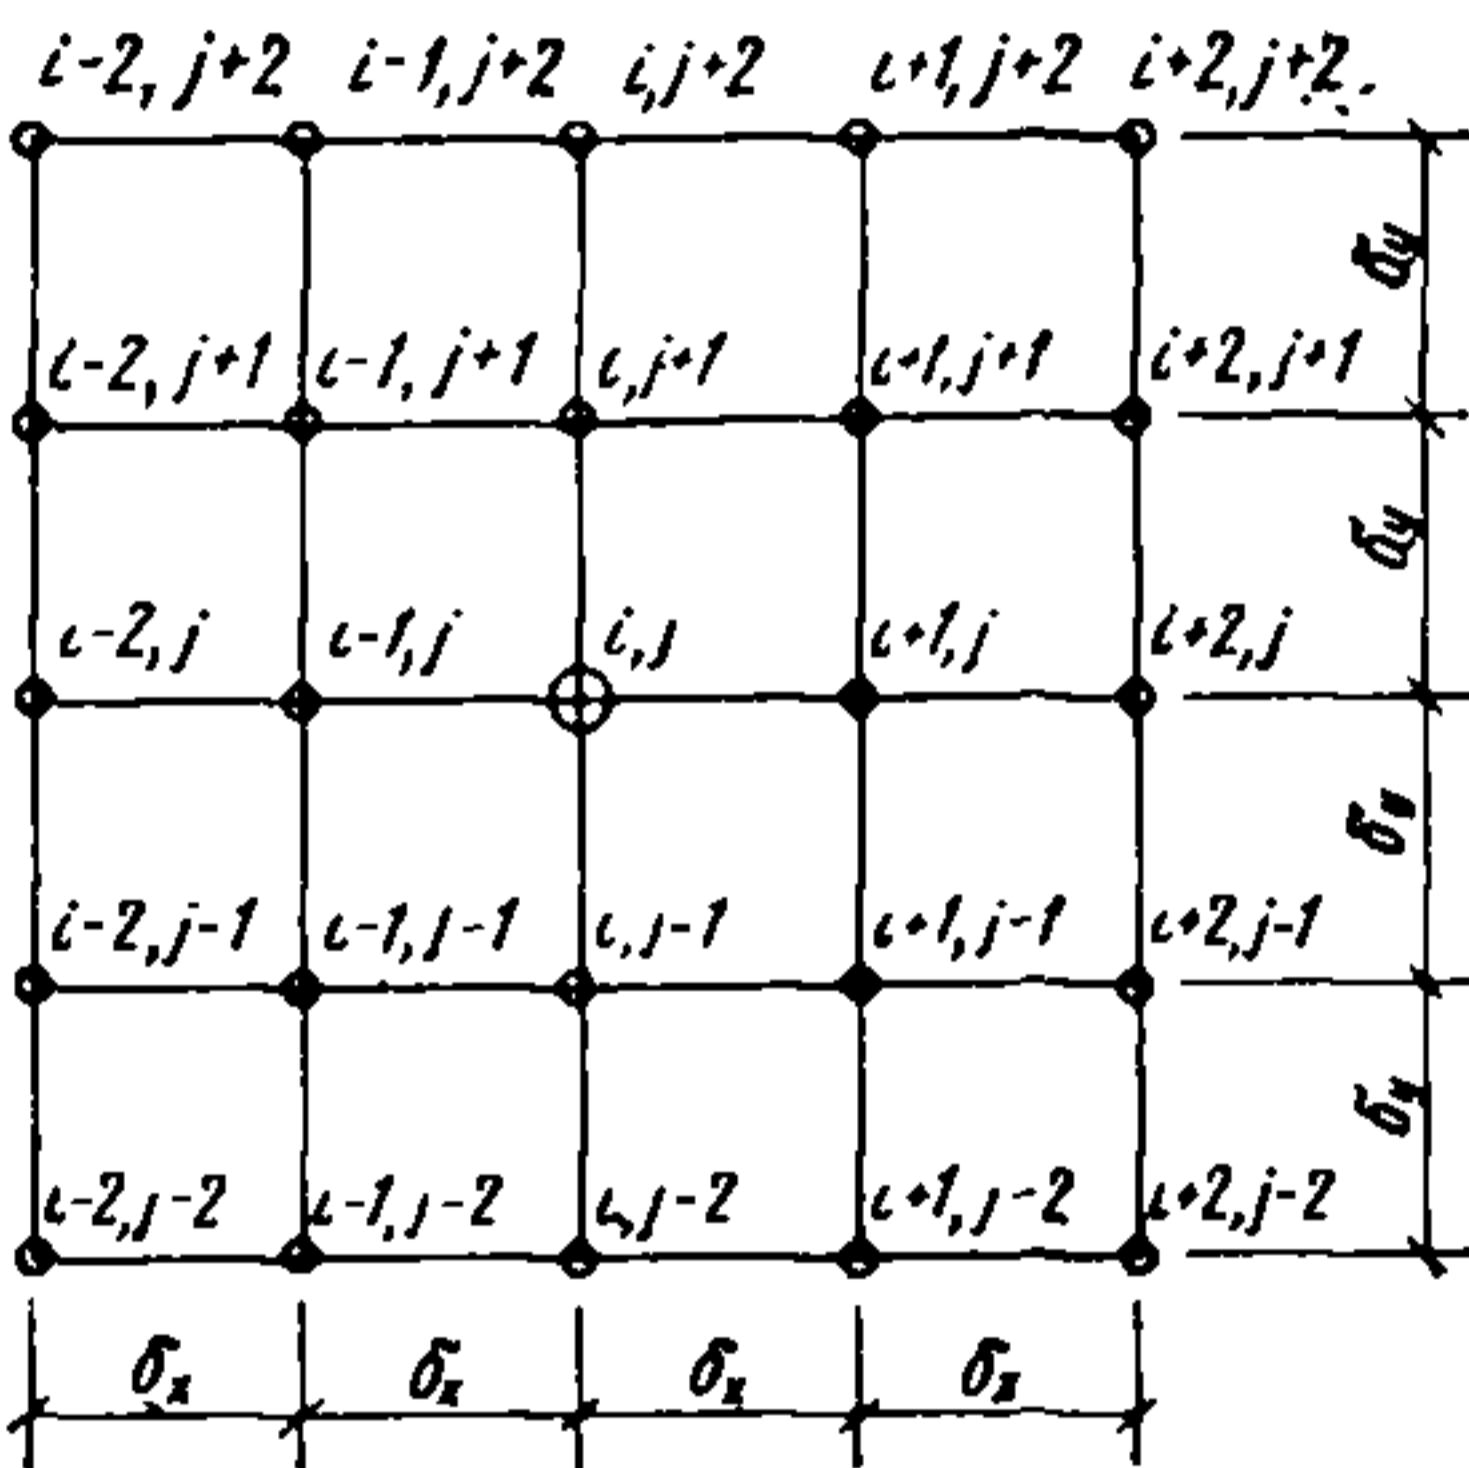 i-2, j+2 i-1, j+2 i, j+2 i+1, j+2 i+2, j+2
δy
i-2, j+1 i-1, j+1 i, j+1 i+1, j+1 i+2, j+1
δy
i-2, j i-1, j i, j i+1, j i+2, j
δy
i-2, j-1 i-1, j-1 i, j-1 i+1, j-1 i+2, j-1
δy
i-2, j-2 i-1, j-2 i, j-2 i+1, j-2 i+2, j-2
δx δx δx δx